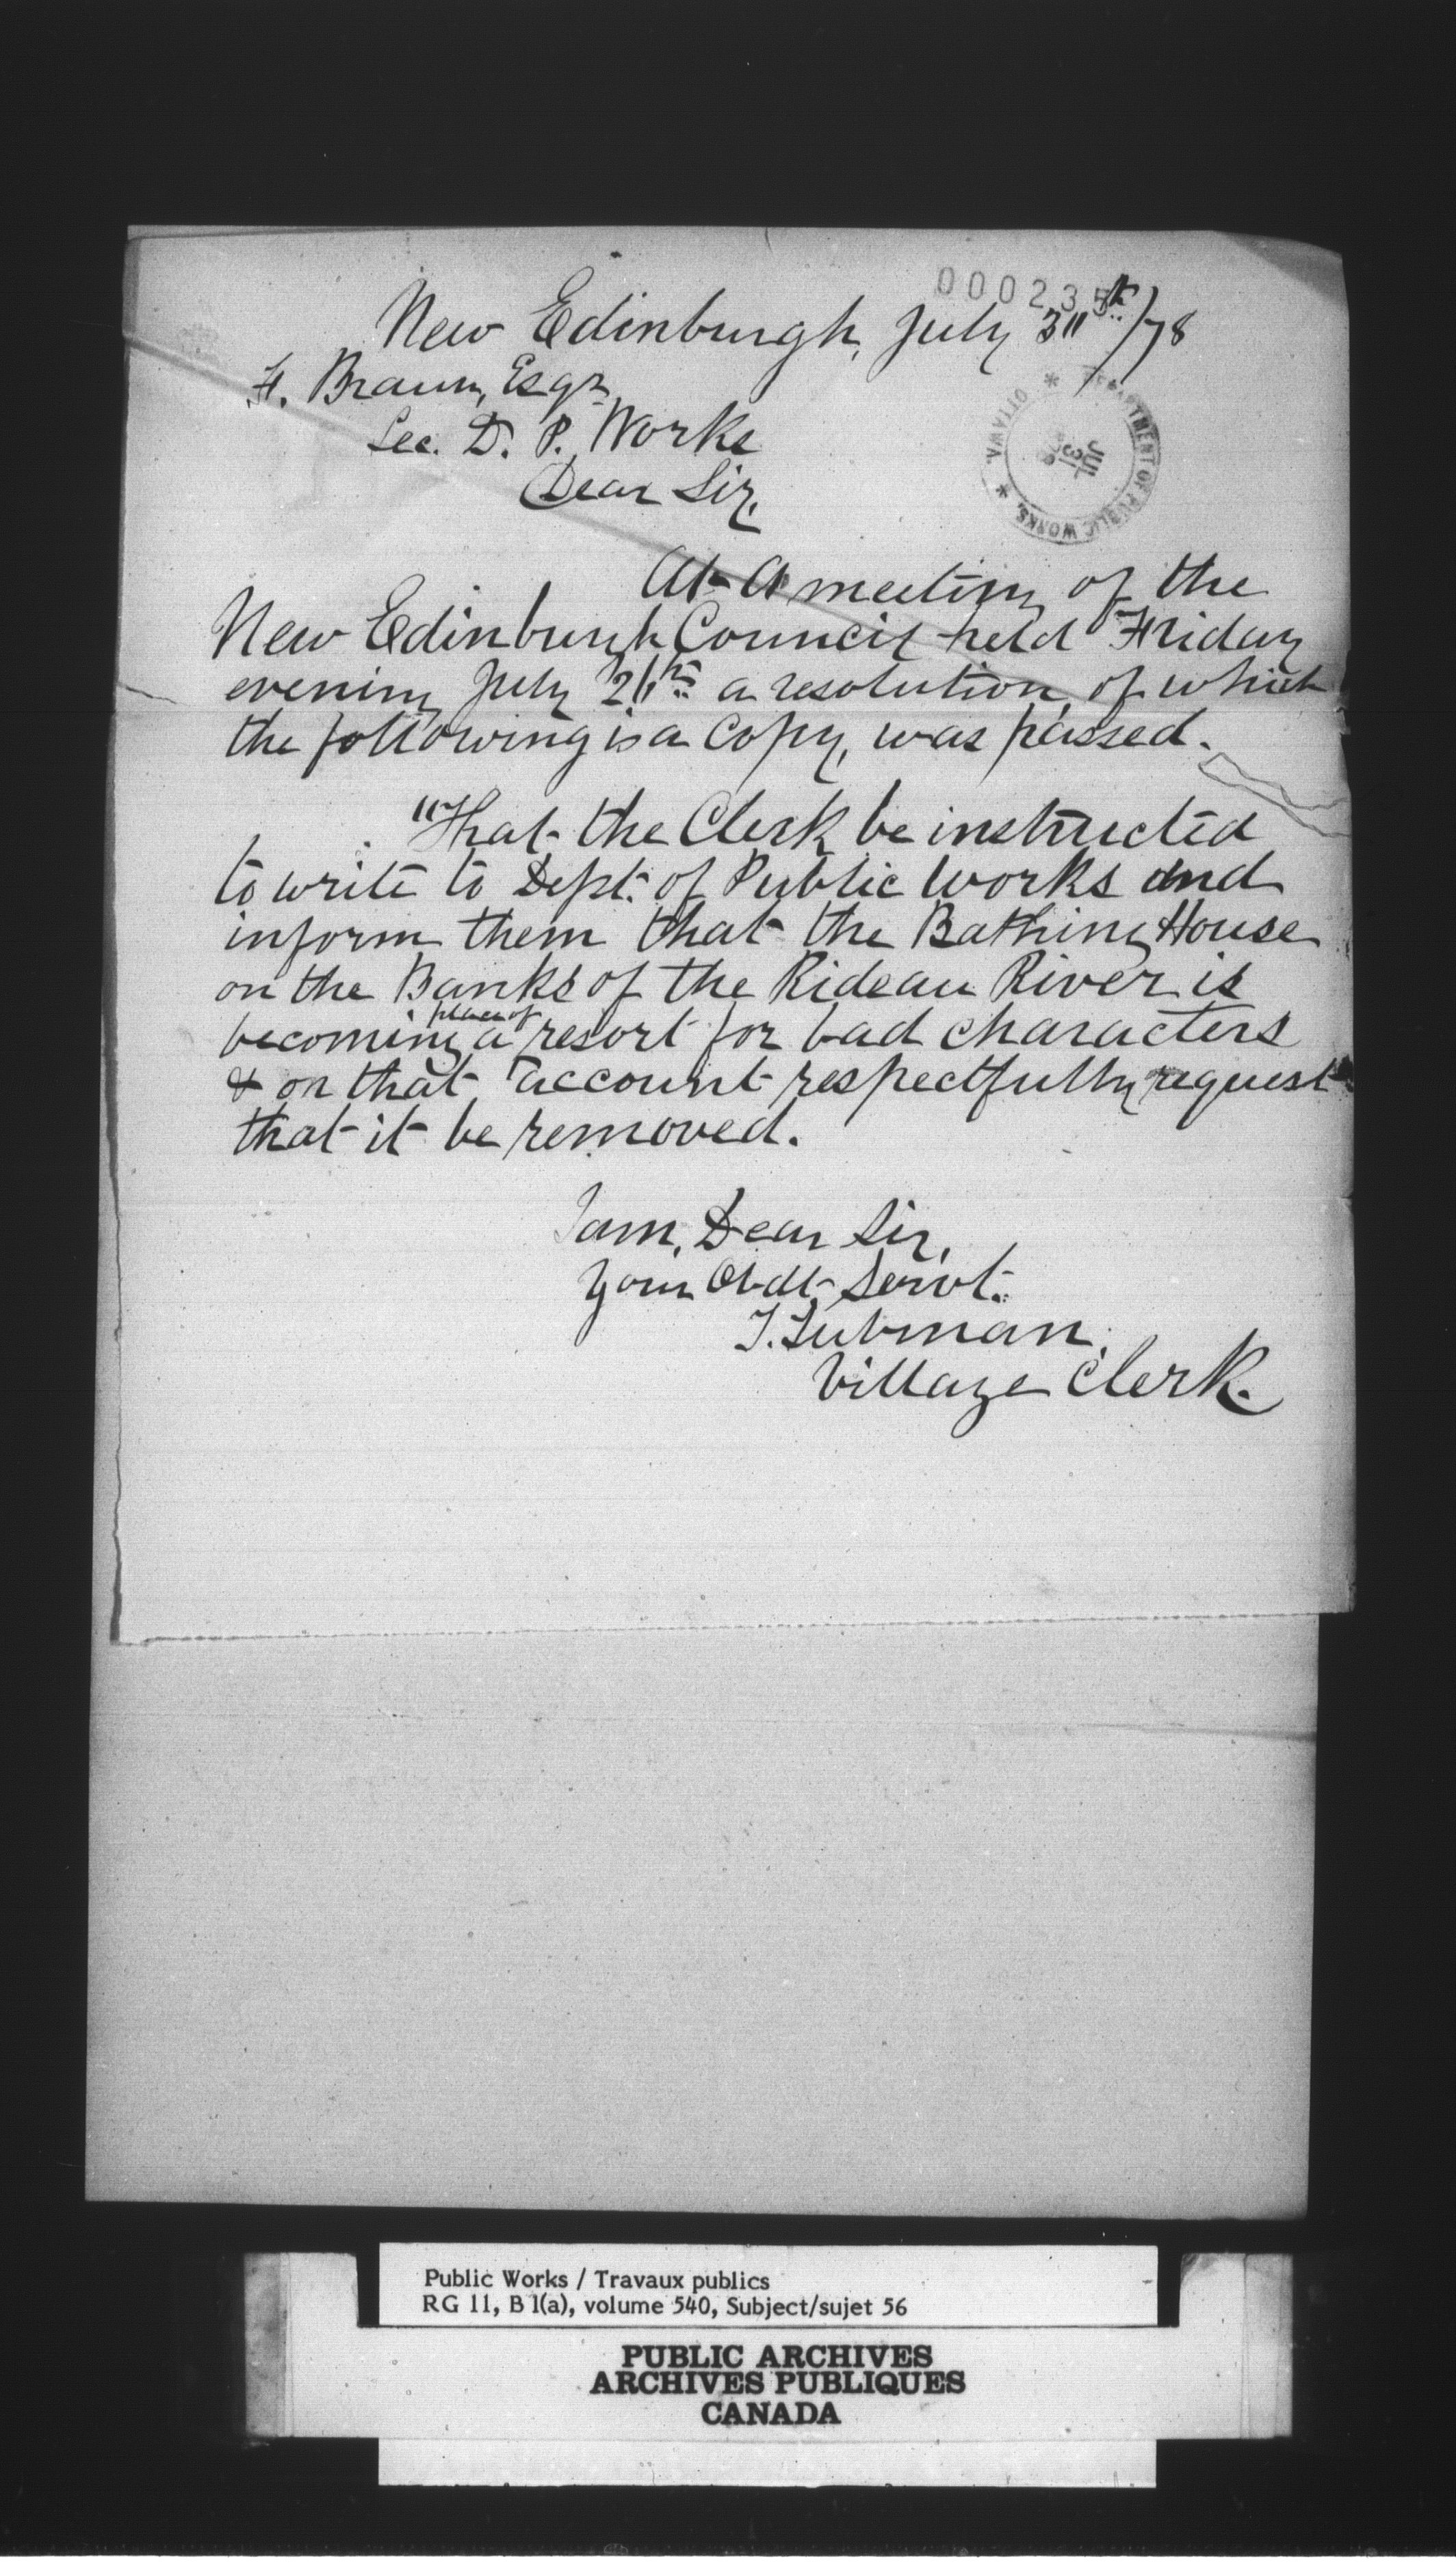 000235
New Edinburgh, July 30th/78
F. Braun, Esqr
Sec. D. P. Works
Dear Sir,
DEPARTMENT OF PUBLIC WORKS. * OTTAWA. *
JUL
31
1878
At a meeting of the
New Edinburgh Council held Friday
evening July 26th a resolution, of which
the following is a copy, was passed.
"That the Clerk be instructed
to write to Dept. of Public Works and
inform them that the Bathing House
on the Banks of the Rideau River is
becoming a place of resort for bad characters
& on that account respectfully request
that it be removed.
I am, Dear Sir,
Your Obdt Servt.
T. Tubman,
Village Clerk.
Public Works / Travaux publics
RG 11, B 1(a), volume 540, Subject/sujet 56
PUBLIC ARCHIVES
ARCHIVES PUBLIQUES
CANADA